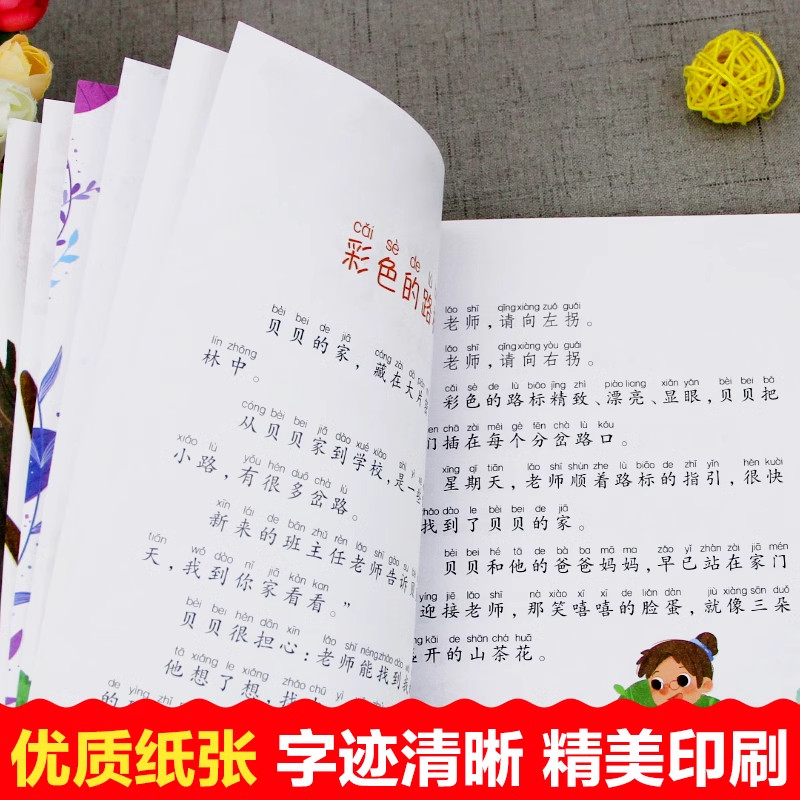 cǎi sè de lù
彩色的路
bèi bei de jiā cáng zài dà
贝贝的家，藏在大片
lín zhōng
林中。
cóng bèi bei jiā dào xué xiào shì yì
从贝贝家到学校，是一些
xiǎo lù yǒu hěn duō chà lù
小路，有很多岔路。
xīn lái de bān zhǔ rèn lǎo shī gào su
新来的班主任老师告诉
tiān wǒ dào nǐ jiā kàn kan
天，我到你家看看。”
bèi bei hěn dān xīn lǎo shī néng zhǎo dào
贝贝很担心：老师能找到我
tā xiǎng le xiǎng zhǎo chū yí
他想了想，找
de yìng zhǐ
的
lǎo shī qǐng xiàng zuǒ guǎi
老师，请向左拐。
lǎo shī qǐng xiàng yòu guǎi
老师，请向右拐。
cǎi sè de lù biāo jīng zhì piào liang xiǎn yǎn bèi bei bǎ
彩色的路标精致、漂亮、显眼，贝贝把
men chā zài měi gè fēn chà lù kǒu
们插在每个分岔路口。
xīng qī tiān lǎo shī shùn zhe lù biāo de zhǐ yǐn hěn kuài
星期天，老师顺着路标的指引，很快
zhǎo dào le bèi bei de jiā
找到了贝贝的家。
bèi bei hé tā de bà ba mā ma zǎo yǐ zhàn zài jiā mén
贝贝和他的爸爸妈妈，早已站在家门
yíng jiē lǎo shī nà xiào xī xī de liǎn dàn jiù xiàng sān duǒ
迎接老师，那笑嘻嘻的脸蛋，就像三朵
kāi de shān chá huā
开的山茶花。
优质纸张 字迹清晰 精美印刷